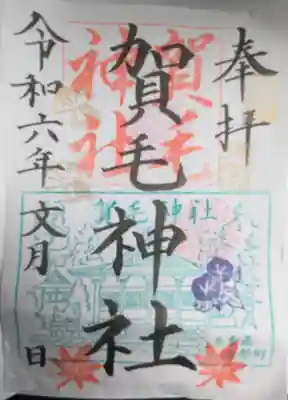 奉拝
賀毛神社
令和六年文月 日
賀毛
神社
賀毛神社